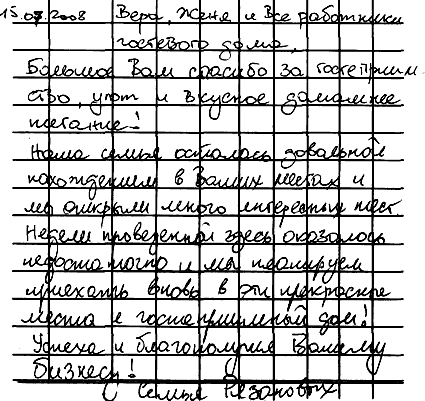 15.07.2008 Вера, Женя и все работники
гостевого дома,
Большое Вам спасибо за гостеприим
ство, уют и вкусное домашнее
питание!
Наша семья осталась довольной
нахождением в Ваших местах и
мы открыли много интересных мест.
Недели проведенной здесь оказалось
недостаточно и мы планируем
приехать вновь в эти прекрасные
места и гостеприимный дом!
Успеха и благополучия Вашему
бизнесу!
Семья Рязановых